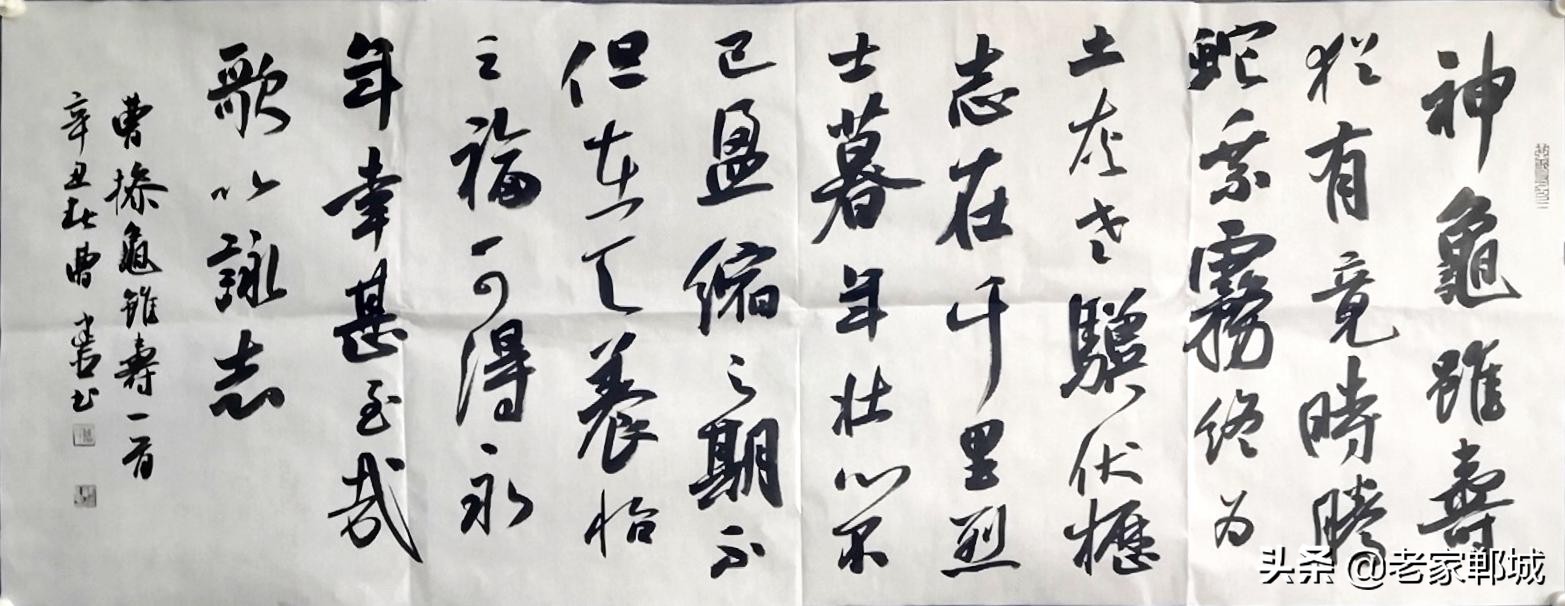 神龜雖壽
犹有竟時騰
蛇乘霧终为
土灰老驥伏櫪
志在千里烈
士暮年壮心不
已盈縮之期不
但在天養怡
之福可得永
年幸甚至哉
歌以詠志
曹操龜雖壽一首
辛丑春曹书
头条 @老家郸城